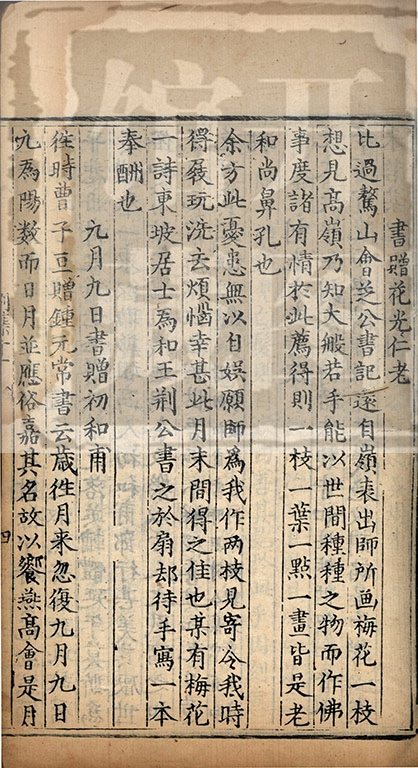 書贈花光仁老
比過鰲山會芝公書記遠自嶺表出師所画梅花一枝
想見高嶺乃知大般若手能以世間種種之物而作佛
事度諸有情於此薦得則一枝一葉一點一畫皆是老
和尚鼻孔也
余方此憂患無以自娛願師為我作两枝見寄令我時
得展玩洗去煩惱幸甚此月末間得之佳也某有梅花
一詩東坡居士為和王荆公書之於扇却待手寫一本
奉酬也
九月九日書贈初和甫
往時曹子亘贈鍾元常書云歲徃月来忽復九月九日
九為陽數而日月並應俗嘉其名故以饗燕高會是月
四